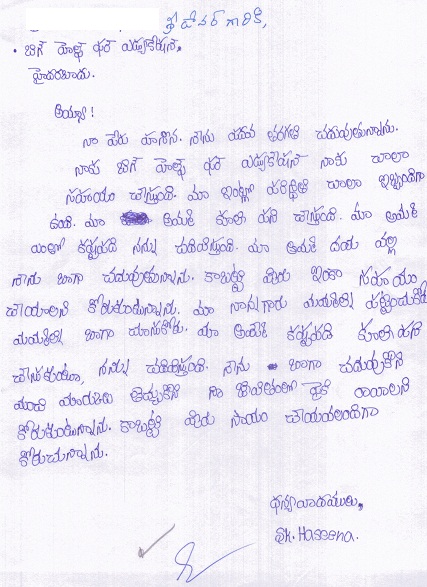 శ్రీ దేవర్ గారికి,
బిగ్ హెల్ప్ ఫర్ ఎడ్యుకేషన్,
హైదరబాదు.
అయ్యా!
నా పేరు హసీన. నేను పదవ తరగతి చదువుతున్నాను.
నాకు బిగ్ హెల్ప్ ఫర్ ఎడ్యుకేషన్ నాకు చాలా
సహయం చేస్తుంది. మా ఇంట్లో పరిస్థితి చాలా ఇబ్బందిగా
ఉంది. మా అమ్మ కూలి పని చేస్తుంది. మా అమ్మ
ఎంతో కష్టపడి నన్ను చదివిస్తుంది. మా అమ్మ దయ వల్ల
నేను బాగా చదువుతున్నాను. కాబట్టి మీరు ఇంకా సహాయం
చేయాలని కోరుకుంటున్నాను. మా నాన్నగారు మమ్మల్ని పట్టించుకోరు
మమ్మల్ని బాగా చూసుకోరు. మా అమ్మ కష్టపడి కూలి పని
చేసుకుంటూ, నన్ను చదివిస్తుంది. నేను బాగా చదువుకొని
మంచి మార్కులు తెచ్చుకొని నా జీవితంలో పైకి రావాలని
కోరుకుంటున్నాను. కాబట్టి మీరు సాయం చేయవలందిగా
కోరుచున్నాను.
ధన్యావాదములు,
Sk. Haseena.